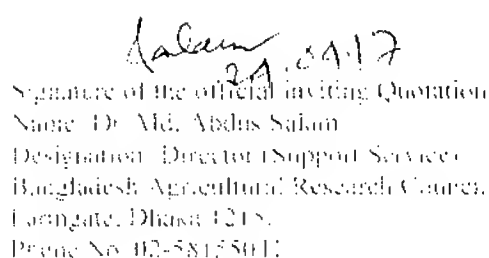 Salam
24.04.17
Signature of the official inviting Quotation
Name: Dr. Md. Abdus Salam
Designation: Director (Support Service)
Bangladesh Agricultural Research Council
Farmgate, Dhaka 1215.
Phone No. 02-58155012